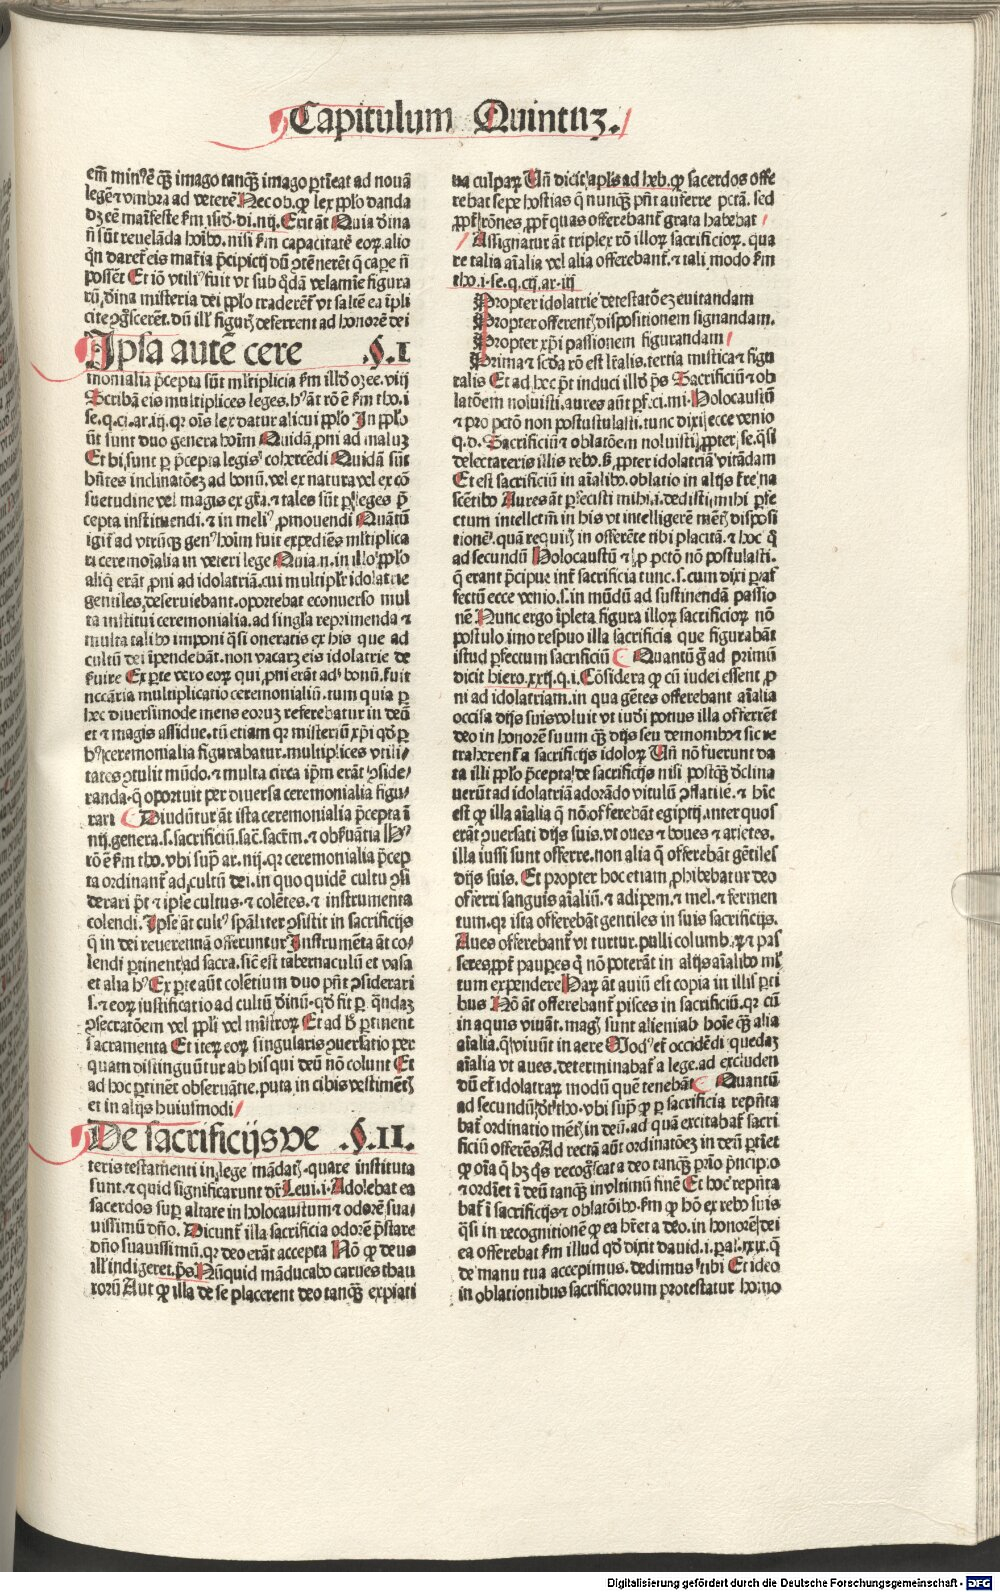 Capitulum Quintuꝫ.
em̄ minꝰ ē qꝫ imago tanqꝫ imago ꝑtineat ad nouā
legē ⁊ vmbra ad veterē Nec ob. ꝙ lex pplo danda
dꝫ eē maīfeste ẜm isid. di. iiij. Erit āt Quia diuina
n̄ sūt reuelāda hoībo. nisi ẜm capacitatē eoꝝ. alio
qn daret eis mat̄ia p̄cipicij dū ↄtēnerēt q̄ caꝑe n̄
possēt Et iō vtiliꝰ fuit vt sub qdā velamie figura
rū diuina misteria dei pplo traderēt vt saltē ea īpli
cite ↄgscerēt. dū illꝭ figurꝭ deferrent ad honorē dei
Ipsa autē cere .§.I
monialia p̄cepta sūt mltiplicia ẜm illḋ ozee. viij
Scribā eis multiplices leges. hꝰ āt rō ē ẜm tho. i
se. q. ci. ar. iij. qꝛ oīs lex datur alicui pplo In pplo
āt sunt duo genera hoīm Quidā ꝓni ad maluꝫ
Et hi sunt ꝑ p̄cepta legis cohercēdi Quidā sūt
hn̄tes inclinatōeꝫ ad bonū. vel ex natura vel ex cō
suetudine vel magis ex gr̄a. ⁊ tales sūt ꝑ leges p̄
cepta instituendi. ⁊ in meliꝰ ꝓmouendi Quātū
igit̄ ad vtrūqꝫ genꝰ hoīm fuit expediēs mltiplica
ri ceremoīalia in veteri lege Quia .n. in illo pplo
aliq̄ erāt ꝓni ad idolatriā. cui multiplr̄ idolatrie
gentiles deseruiebant. oportebat econuerso mul
ta institui ceremonialia. ad singla reprimenda ⁊
multa talibo imponi q̄si oneratis ex his que ad
cultū dei īpendebāt. non vacaꝝ eis idolatrie de
ẜuire Ex ꝑte vero eoꝝ qui ꝓni erāt ad bonū. fuit
nccāria multiplicatio ceremonialiū. tum quia ꝑ
hec diuersimode mens eoruꝫ referebatur in deū
et ⁊ magis assidue. tū etiam qꝛ misteriū xp̄i qḋ ꝑ
hꝰ ceremonialia figurabatur. multiplices vtili⸗
tates ↄtulit mūdo. ⁊ multa circa ip̄m erāt ↄside⸗
randa. q̄ oportuit per diuersa ceremonialia figu⸗
rari Diuidūtur āt ista ceremonialia p̄cepta ī
iiij. genera. s. sacrificiū. sac̄. sacr̄m. ⁊ obẜuātia Hꝰ
rō ē ẜm tho. vbi sup̄ ar. iiij. qꝛ ceremonialia p̄cep
ta ordinant̄ ad cultū dei. in quo quidē cultu ↄsi
derari p̄t ⁊ ip̄e cultus. ⁊ colētes. ⁊ instrumenta
colendi. Ipse āt cultꝰ sp̄aliter ↄsistit in sacrificijs
q̄ in dei reuerentiā offeruntur Instrumēta āt co⸗
lendi ꝑtinent ad sacra. sic̄ est tabernaculū et vasa
et alia hꝰ Ex ꝑte aūt colētium duo pn̄t ↄsiderari
s. ⁊ eoꝝ iustificatio ad cultū diuinū. qḋ fit ꝑ qndaꝫ
ↄsecratōem vel ppli vel mīstroꝝ Et ad hḋ ꝑtinent
sacramenta Et iteꝝ eoꝝ singularis ↄuersatio per
quam distingūtur ab his qui deū nō colunt Et
ad hoc ꝑtinēt obseruātie. puta in cibis vestimētꝭ
et in alijs huiusmodi
De sacrificijs ve .§.II.
teris testamenti in lege mādatꝭ. quare instituta
sunt. ⁊ quid significarunt dr̄ Leui. i. Adolebat ea
sacerdos suꝑ altare in holocaustum ⁊ odorē sua⸗
uissimū dn̄o. Dicunt̄ illa sacrificia odorē p̄stare
dn̄o suauissimū. qꝛ deo erāt accepta Nō ꝙ deus
illꝭ indigeret. p̄s. Nūquid māducabo carnes thau
rorū Aut ꝙ illa de se placerent deo tanqꝫ expiati
ua culpaꝝ Un̄ dicit apl̄s ad heb. ꝙ sacerdos offe
rebat sepe hostias q̄ nunqꝫ pn̄t auferre pctā. sed
ꝓpt̄ rōnes ꝓpt̄ quas offerebant̄ grata habebat
Assignatur āt triplex rō illoꝝ sacrificioꝝ. qua
re talia aīalia vel alia offerebant̄. ⁊ tali modo ẜm
tho. i. se. q. cij. ar. iij
Propter idolatrie detestatōeꝫ euitandam
Propter offerentꝭ dispositionem signandam.
Propter xp̄i passionem figurandam
Prima ⁊ scḋa rō est lr̄alis. tertia mistica ⁊ figu
ralis Et ad hec p̄t induci illḋ p̄s Sacrificiū ⁊ ob
latōem noluisti. aures aūt ꝑf. ci. mi. Holocaustū
⁊ pro pctō non postustulasti. tunc dixi ecce venio
q. d. Sacrificiū ⁊ oblatōem noluisti ꝓpter se. q̄si
delectareris illis rebo. s̄ ꝓpter idolatriā vitādam
Et est sacrificiū in aīalibo. oblatio in alijs t̄re na
scētibo Aures āt ꝑfecisti mihi. i. dedisti mihi ꝑfe
ctum intellectū in his vt intelligerē mētꝭ disposi
tionē. quā requiris in offerēte tibi placitā. ⁊ hoc q̄
ad secundū Holocaustū ⁊ ꝓ pctō nō postulasti.
q̄ erant p̄cipue int̄ sacrificia tunc. s. cum dixi paͬ
fectum ecce venio. s. in mūdū ad sustinendā passio
nē Nunc ergo īpleta figura illoꝝ sacrificioꝝ nō
postulo imo respuo illa sacrificia que figurabāt
istud ꝑfectum sacrificiū Quantū ḡ ad primū
dicit hiero. xxij. q. i. Cōsidera ꝙ cū iudei essent ꝓ
ni ad idolatriam. in qua gētes offerebant aīalia
occisa dijs suis voluit vt iudei potius illa offerrēt
deo in honorē suum qꝫ dijs seu demonibo ⁊ sic re
traherent̄ a sacrificijs idoloꝝ Un̄ nō fuerunt da
ta illi pplo p̄cepta de sacrificijs nisi postqꝫ declina
uerūt ad idolatriā adorādo vitulū ↄflatile. ⁊ hīc
est ꝙ illa aīalia q̄ nō offerebāt egiptij. inter quos
erāt ↄuersati dijs suis. vt oues ⁊ boues ⁊ arietes.
illa iussi sunt offerre. non alia q̄ offerebāt gētiles
dijs suis. Et propter hoc etiam ꝓhibebatur deo
offerri sanguis aīaliū. ⁊ adipem. ⁊ mel. ⁊ fermen
tum. qꝛ ista offerebāt gentiles in suis sacrificijs.
Aues offerebant̄ vt turtur. pulli columbaꝝ ⁊ pas
seres ꝓpt̄ pauꝑes q̄ nō poterāt in alijs aīalibo ml̄
tum expendere Haꝝ āt auiū est copia in illis ꝑti
bus Nō āt offerebant̄ pisces in sacrificiū. qꝛ cū
in aquis viuāt. magꝭ sunt alieni ab hoīe qꝫ alia
aīalia. q̄ viuūt in aere Modꝰ et̄ occidēdi quedaꝫ
aīalia vt aues. determinabat̄ a lege. ad excluden
dū et̄ idolatraꝝ modū quē tenebāt Quantū
ad secundū dr̄ tho. vbi sup̄ ꝙ ꝑ sacrificia rep̄nta
bat̄ ordinatio mētꝭ in deū. ad quā excitabat̄ sacri
ficiū offerēs Ad rectā aūt ordinatōeꝫ in deū ꝑtinet
ꝙ oīa q̄ hꝫ qs recogscat a deo tanqꝫ prīo p̄ncipio
⁊ ordiet ī deū tanqꝫ in vltimū finē Et hoc rep̄nta
bat̄ ī sacrificijs ⁊ oblatōibo. ẜm ꝙ hō ex rebo suis
q̄si in recognitionē ꝙ ea hret a deo. in honorē dei
ea offerebat ẜm illud qḋ dixit dauid. i. paꝉ. xxix. q̄
de manu tua accepimus. dedimus tibi Et ideo
in oblationibus sacrificiorum protestatur homo
Digitalisierung gefördert durch die Deutsche Forschungsgemeinschaft - DFG